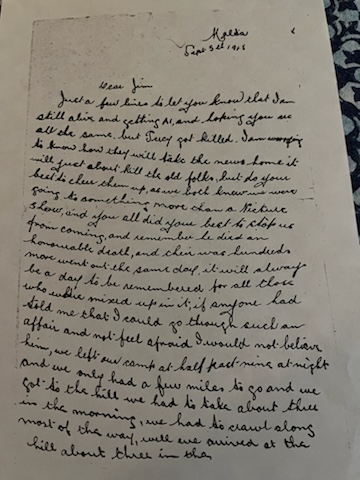 Malta
Sept 3rd 1915
Dear Jim
Just a few lines to let you know that I am
still alive and getting A1, and hoping you are
all the same. but Percy got killed. I am worrying
to know how they will take the news home it
will just about kill the old folks, but do your
best to cheer them up, as we both knew we were
going to something more than a Picture
Show, and you all did your best to stop us
from coming, and remember he died an
honourable death, and their was hundreds
more went out the same day, it will always
be a day to be remembered for all those
who were mixed up in it; if anyone had
told me that I could go though such an
affair and not feel afraid I would not believe
him, we left our camp at half past nine at night
and we only had a few miles to go and we
got to the hill we had to take about three
in the morning, we had to crawl along
most of the way, well we arrived at the
hill about three in the